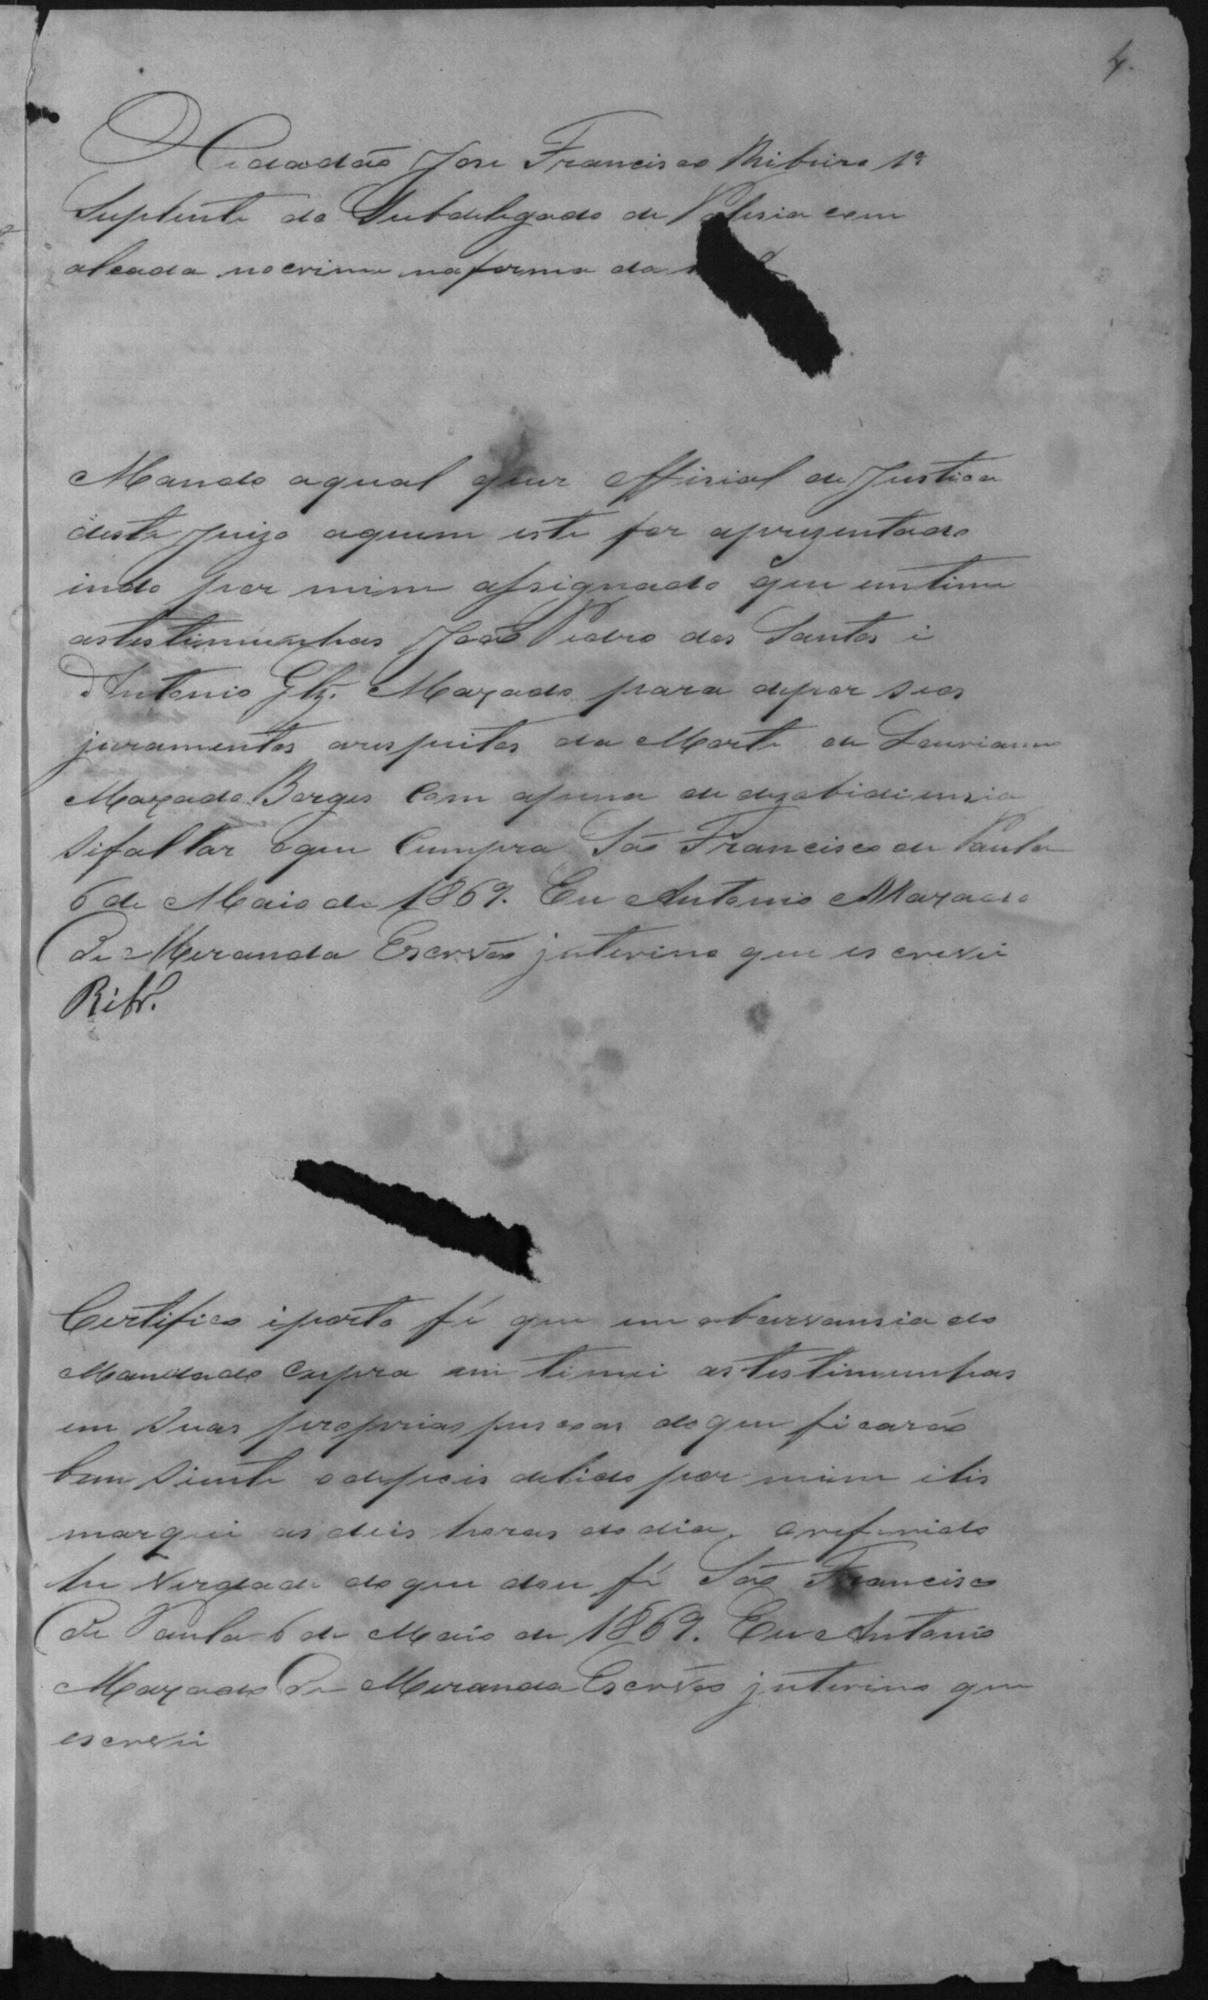 4.
O Cidadão Jose Francisco Ribeiro 1º
Suplente do Subdelegado de Polisia com
alcada nocrime naforma da
Mando aqual quer Offisial de Justica
deste Juizo aquem este for aprezentado
indo por mim assignado que intime
astestimunhas João Pedro dos Santos i
Antonio Glz. Maxado para depor seos
juramentos arespeitos da Morte de Lauriano
Maxado Borges Com apena de dezobidiensia
sifaltar oque Cumpra São Francisco de Paula
6 de Maio de 1869. Eu Antonio Maxado
De Meranda Escrivão jnterino que escrevi
Ribr.º
Certifico iporto fé que em observansia do
Mandado intimei astestimunhas
em Suas proprias pescoas doque ficarão
bem Siente odepois delido por mim ilis
marquei as deis horas do dia. Oreferido
he Verdade doque dou fé São Francisco
De Paula 6 de Maio de 1869. Eu Antonio
Maxado De Meranda Escrivão jnterino que
escrevi